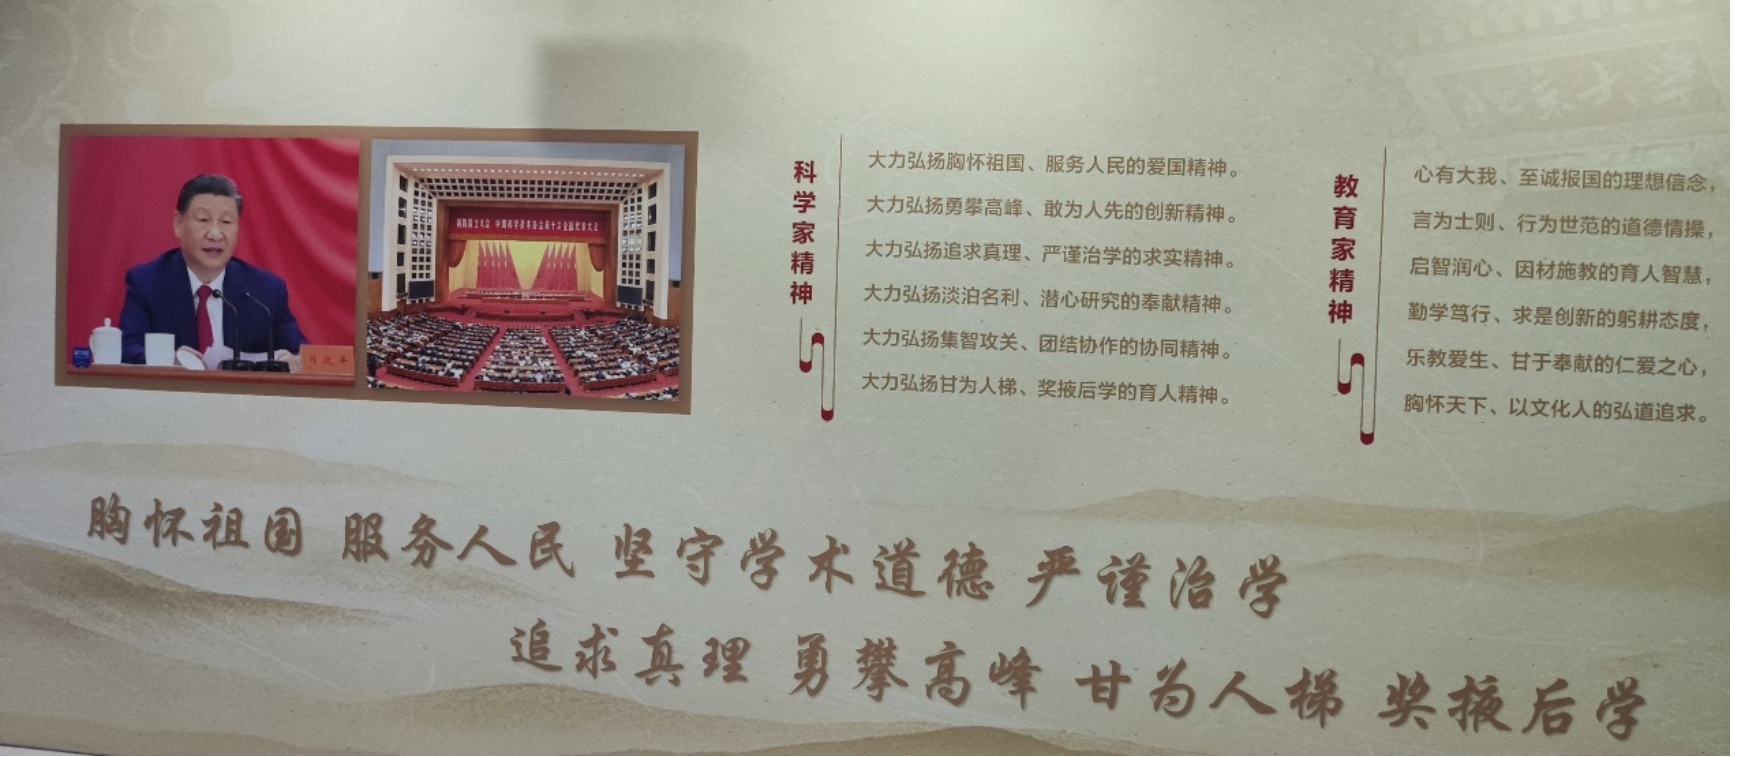 北京大学
两院院士大会 中国科学技术协会第十次全国代表大会
习近平
科学家精神
大力弘扬胸怀祖国、服务人民的爱国精神。
大力弘扬勇攀高峰、敢为人先的创新精神。
大力弘扬追求真理、严谨治学的求实精神。
大力弘扬淡泊名利、潜心研究的奉献精神。
大力弘扬集智攻关、团结协作的协同精神。
大力弘扬甘为人梯、奖掖后学的育人精神。
教育家精神
心有大我、至诚报国的理想信念，
言为士则、行为世范的道德情操，
启智润心、因材施教的育人智慧，
勤学笃行、求是创新的躬耕态度，
乐教爱生、甘于奉献的仁爱之心，
胸怀天下、以文化人的弘道追求。
胸怀祖国 服务人民 坚守学术道德 严谨治学
追求真理 勇攀高峰 甘为人梯 奖掖后学